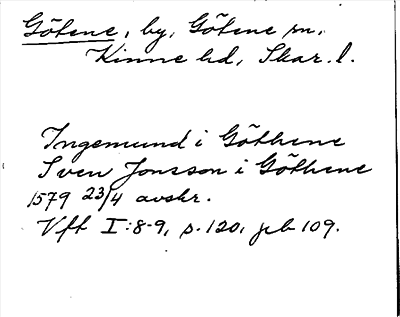 Götene, by, Götene sn,
Kinne hd, Skar. l.
Ingemund i Göthene
Sven Jonsson i Göthene
1579 23/4 avskr.
Vft I:8-9, s. 120, jfr 109.